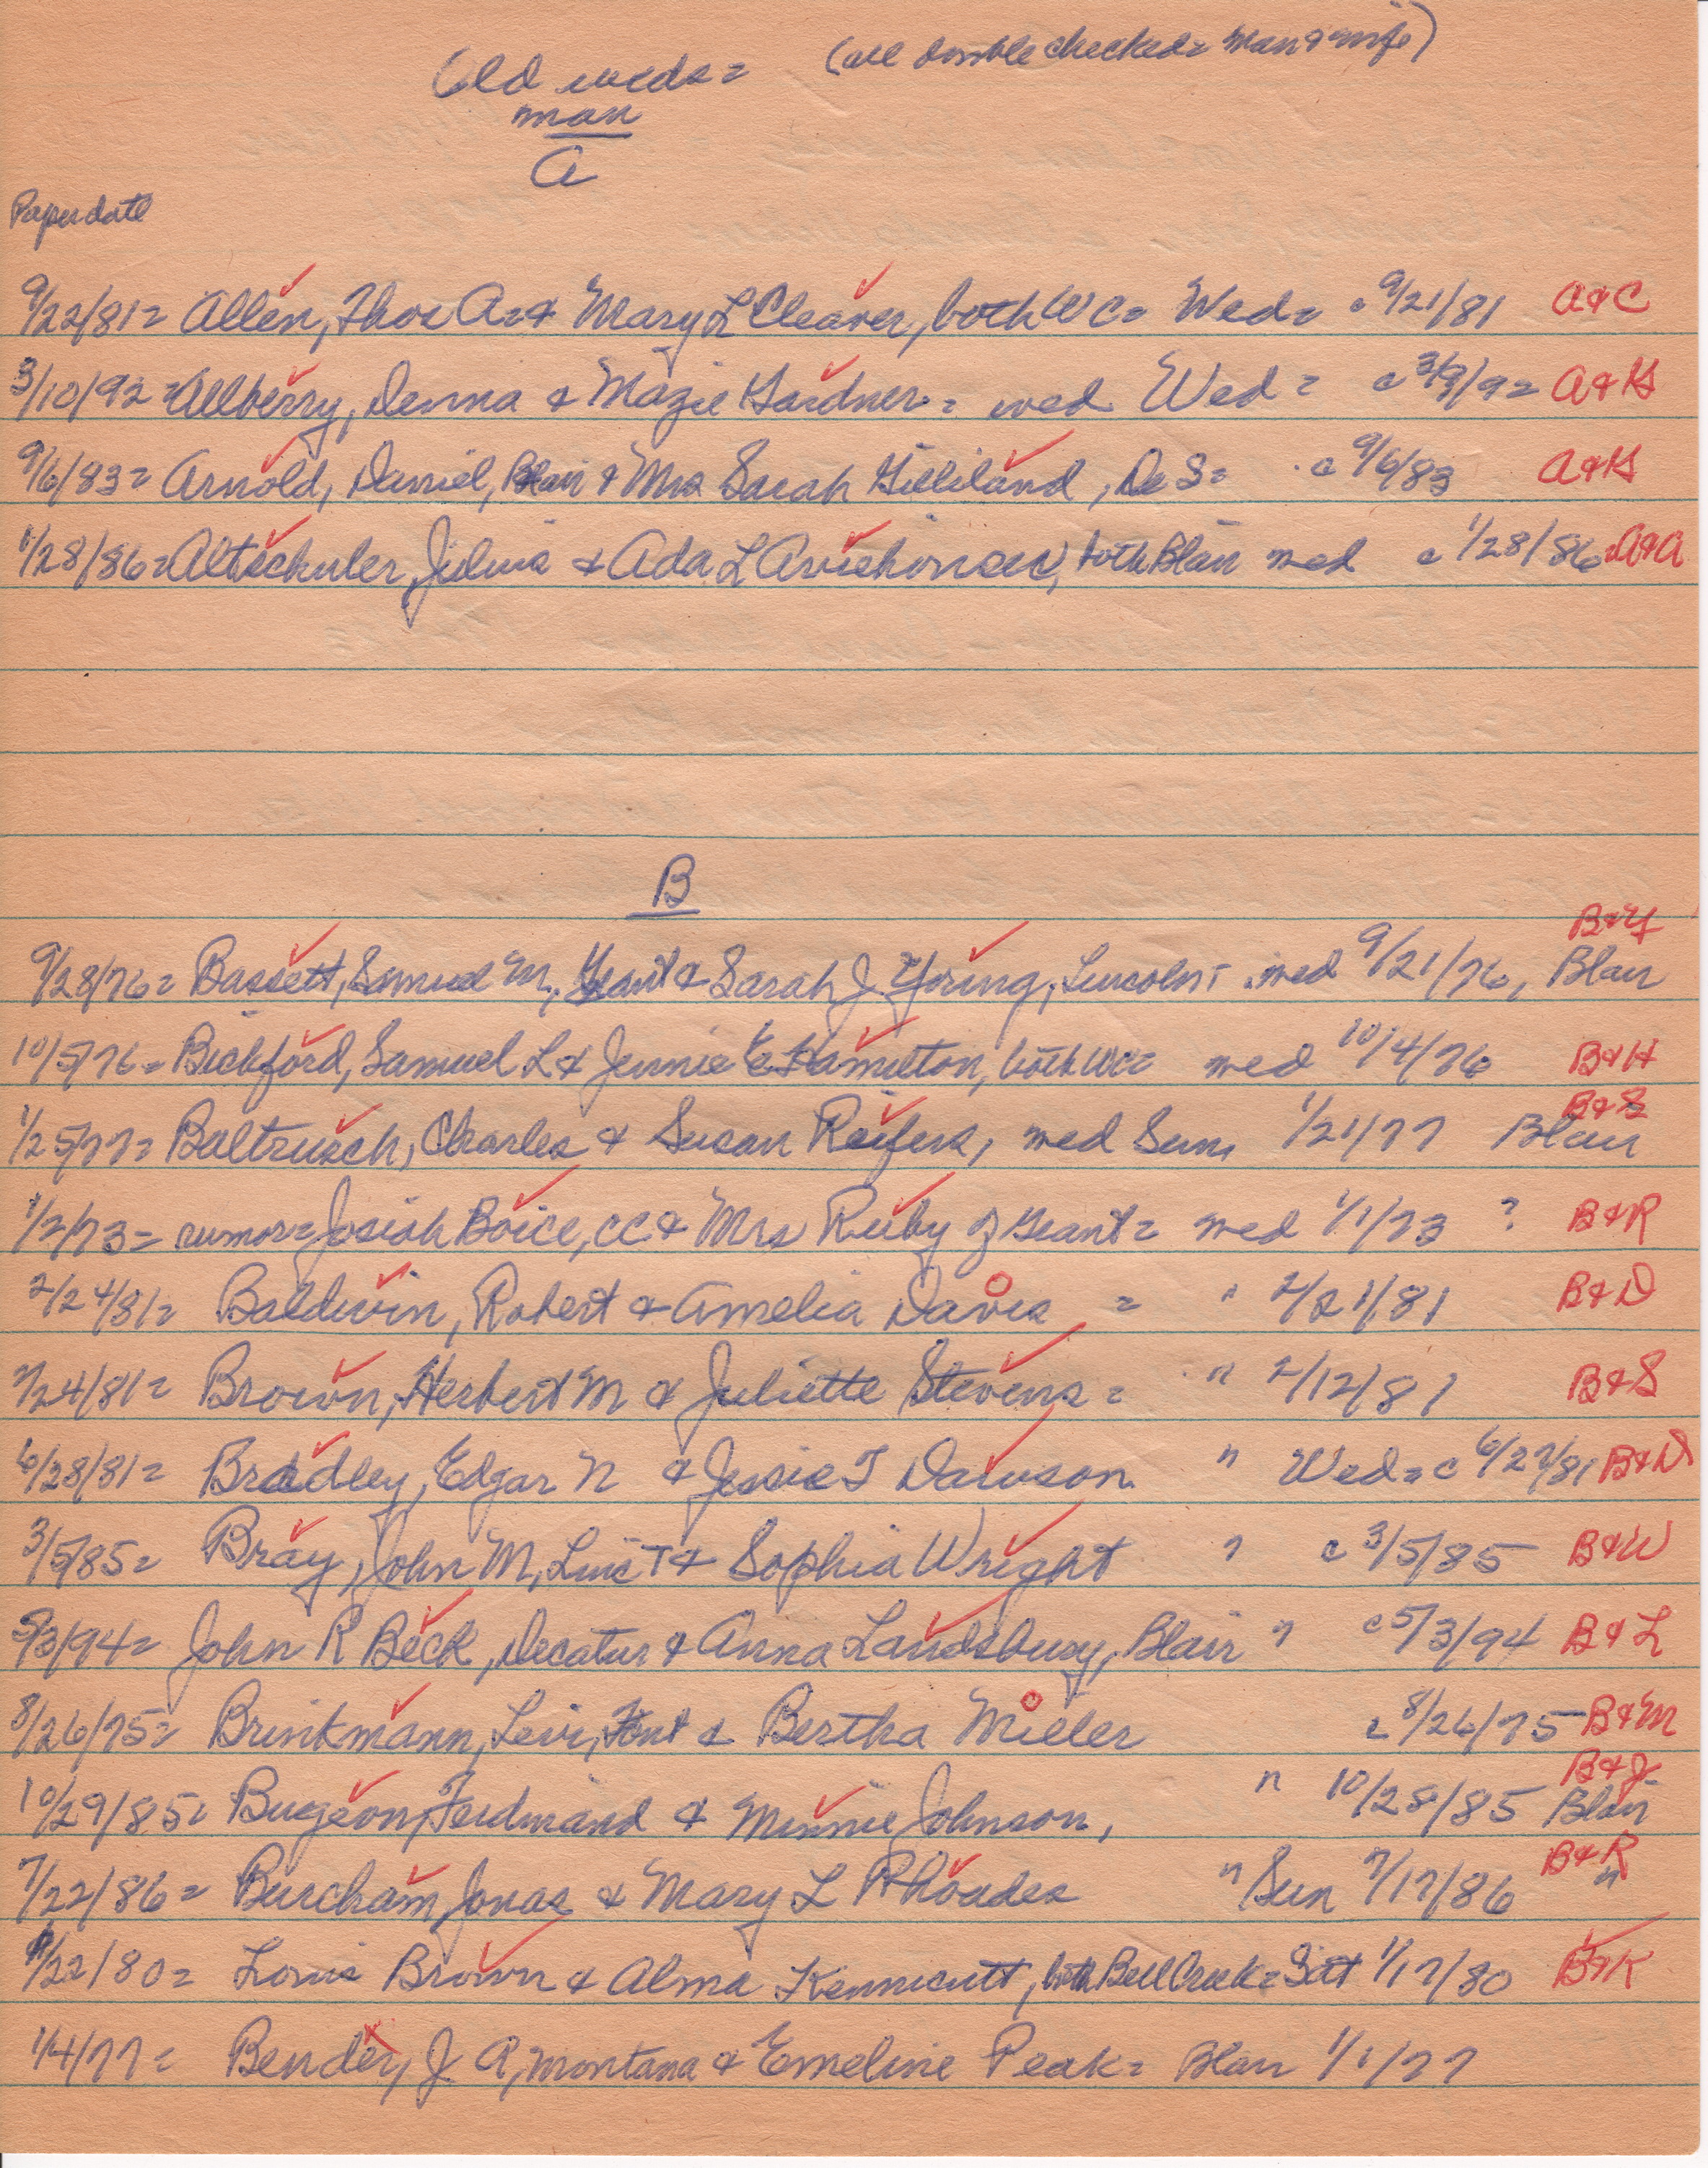 Old weds= (all double checked= man & wife)
man
A
Paper date
9/22/81= Allen, Thos A= & Mary L Cleaver, both WC= Wed= c 9/21/81 A&C
3/10/92 = Allberry, Denna & Mazie Gardner= wed Wed= c 3/9/92 A&G
9/6/83= Arnold, Daniel, Blair & Mrs Sarah Gilliland, De S= c 9/6/83 A&G
1/28/86= Altschuler, Julius & Ada L both Blair med c 1/28/86= A&A
B
B&Y
9/28/76= Bassett, Samuel M, Grant & Sarah J. Young, Lincoln T med 9/21/76, Blair
10/5/76= Bickford, Samuel L & Jennie E Hamilton, both WC= med 10/4/76 B&H
B&R
1/25/77= Baltrusch, Charles & Susan Reifers, med Sun, 1/21/77 Blair
1/2/73= rumor= Josiah Boice, CC & Mrs Ruby of Grant= med 1/1/73 ? B&R
2/24/81= Baldwin, Robert & Amelia Davis = " 2/21/81 B&D
2/24/81= Brown, Herbert M & Juliette Stevens= " 2/12/81 B&S
6/28/81= Bradley, Edgar N & Jessie T Dawson " Wed= c 6/27/81 B&D
3/5/85= Bray, John M, Linc T & Sophia Wright " c 3/5/85 B&W
5/3/94= John R Beck, Decatur & Anna Landsbury, Blair " c 5/3/94 B&L
8/26/75= Brinkmann, Levi, Font & Bertha Miller c 8/26/75 B&M
B&J
10/29/85= Burgeon, Ferdinand & Minnie Johnson, " 10/28/85 Blair
B&R
7/22/86= Burcham, Jonas & Mary L Rhoades " Sun 7/17/86 "
1/22/80= Louis Brown & Alma Kennicutt, both Bell Creek= Satt 1/17/80 B&K
1/4/77= Bender, J. A, Montana & Emeline Peak= Blair 1/1/77